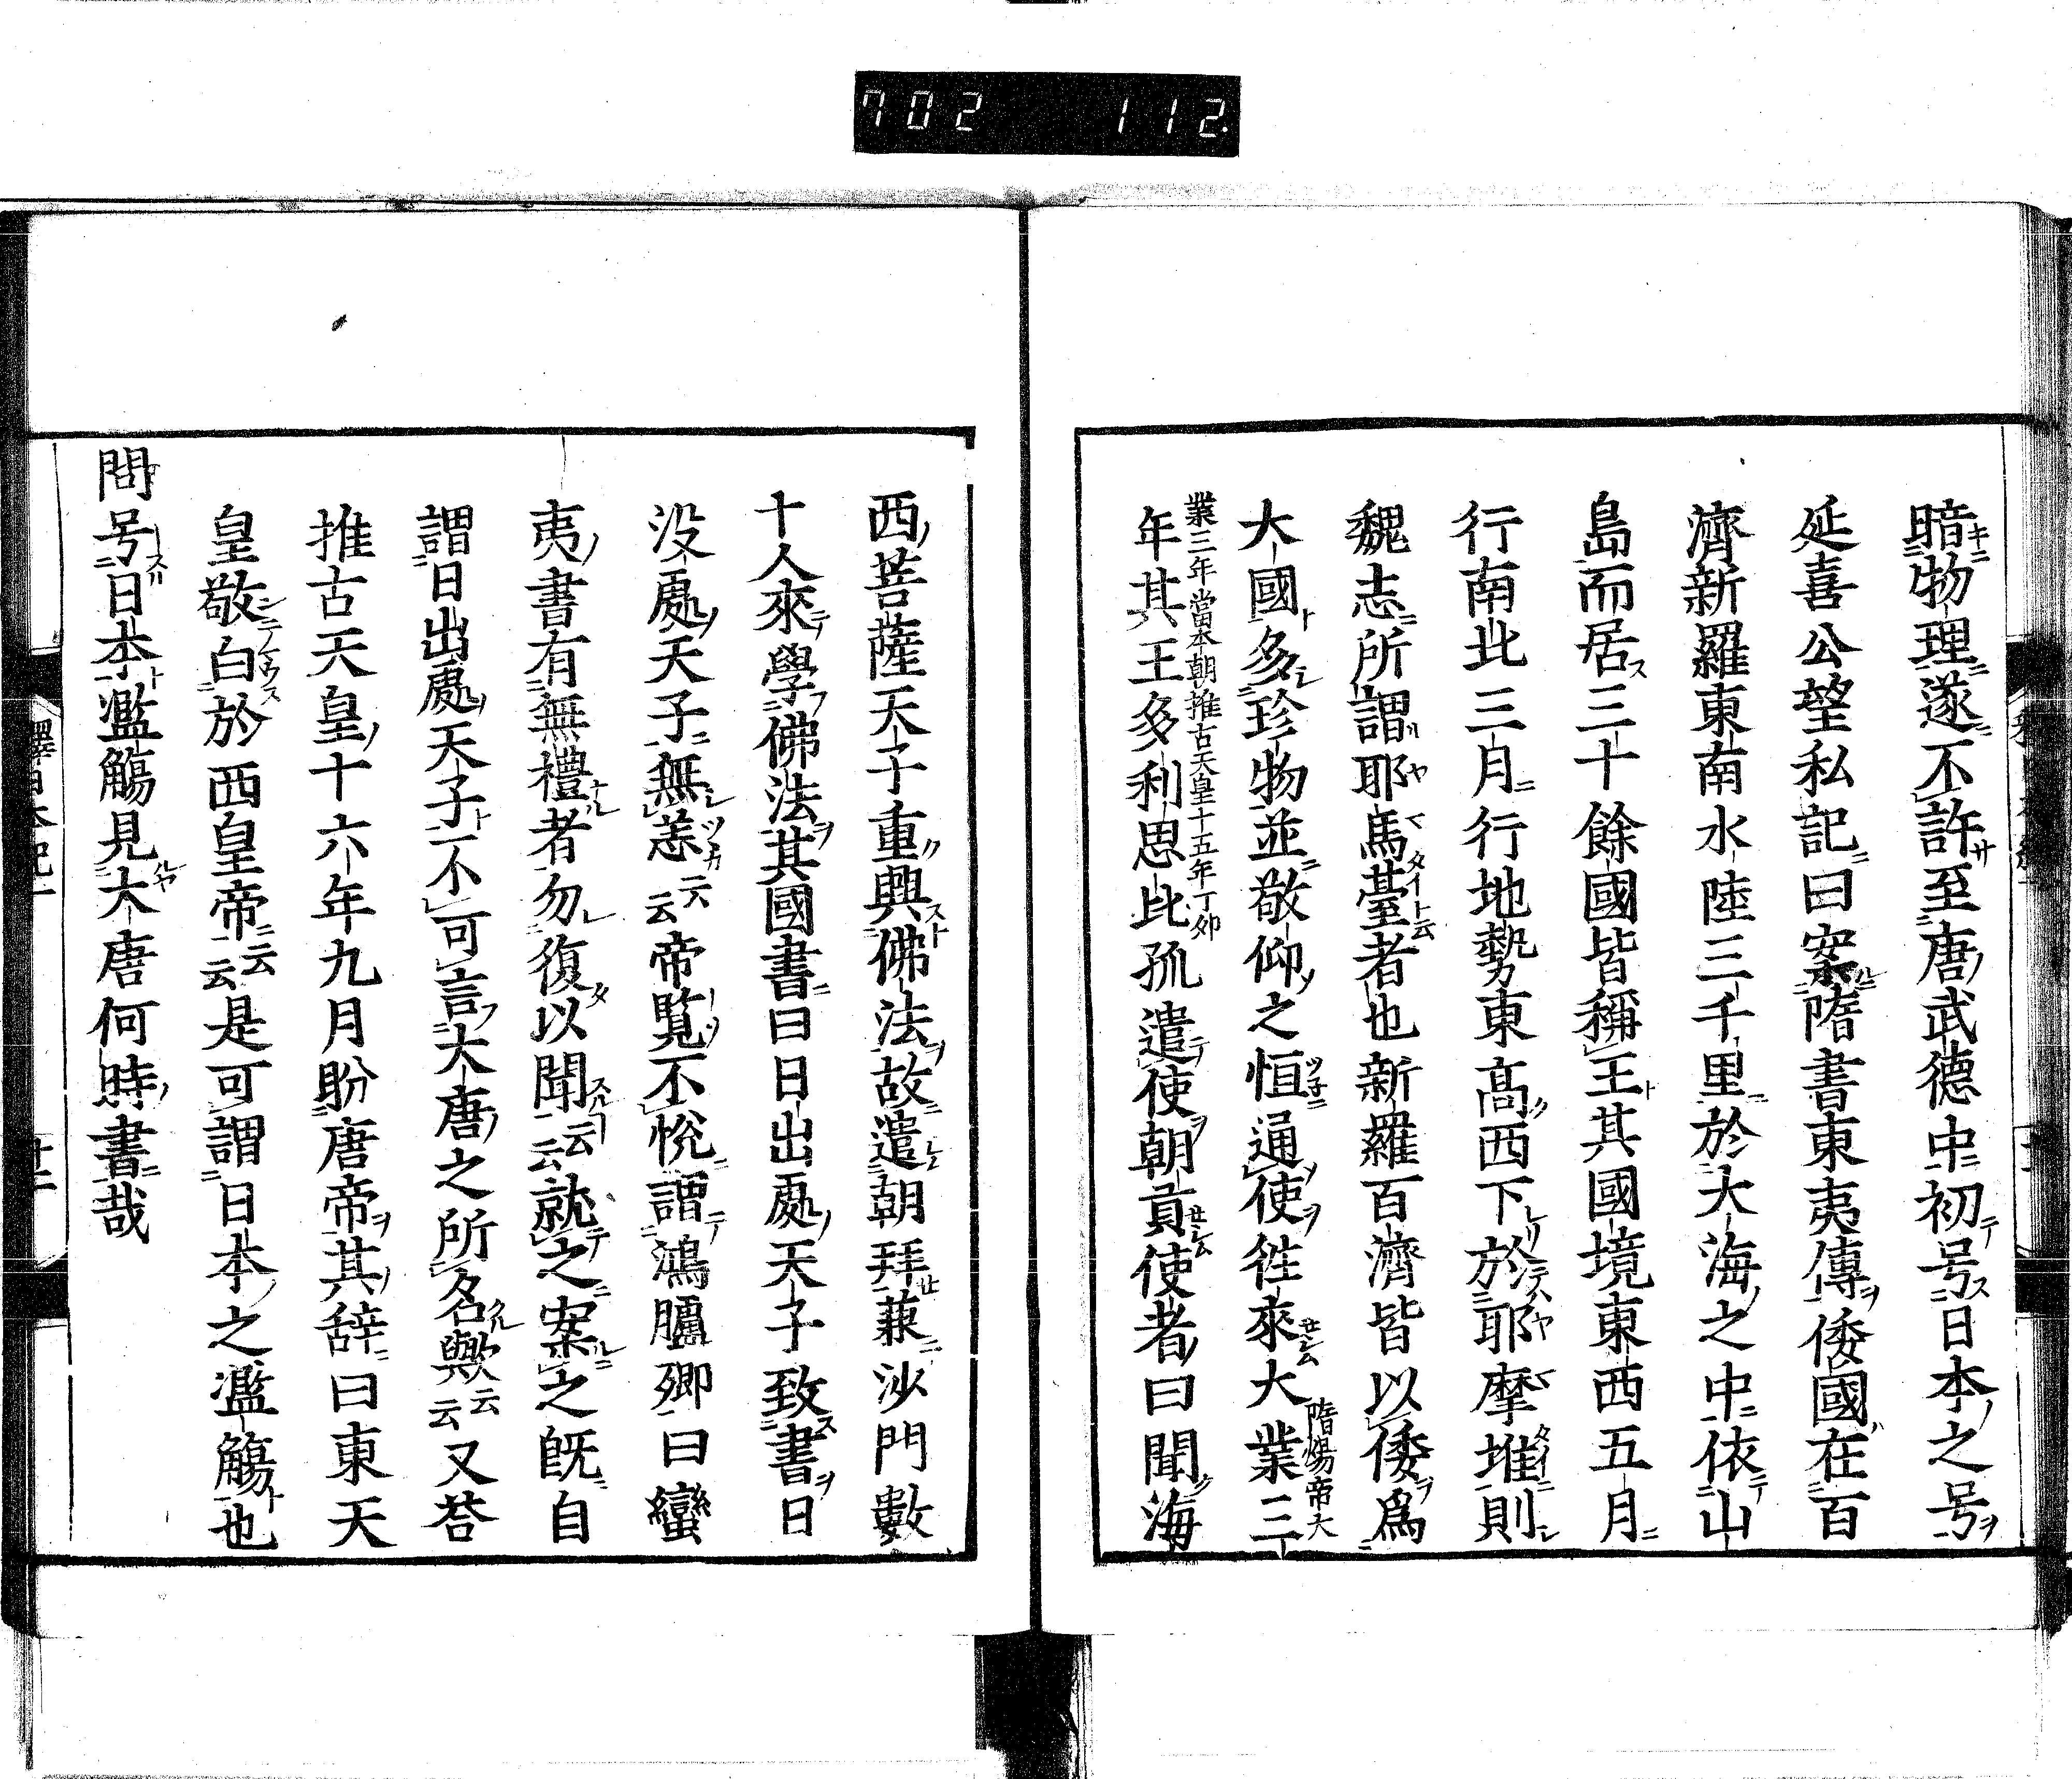 702 112.
暗物理遂不許至唐武德中初号日本之号
延喜公望私記曰案隋書東夷傳倭國在百
濟新羅東南水陸三千里於大海之中依山
島而居三十餘國皆稱王其國境東西五月
行南北三月行地勢東高西下於耶摩堆則
魏志所謂耶馬臺者也新羅百濟皆以倭爲
大國多珍物並敬仰之恒通使徃來大業三
隋煬帝大
業三年當本朝推古天皇十五年丁卯
年其王多利思比孤遣使朝貢使者曰聞海
西菩薩天子重興佛法故遣朝拜兼沙門數
十人來學佛法其國書曰日出處天子致書日
没處天子無恙云云帝覧不悅謂鴻臚卿曰蠻
夷書有無禮者勿復以聞云云就之案之既自
謂日出處天子不可言大唐之所名歟云云又荅
推古天皇十六年九月聆唐帝其辞曰東天
皇敬白於西皇帝云云是可謂日本之濫觴也
問号日本濫觴見大唐何時書哉